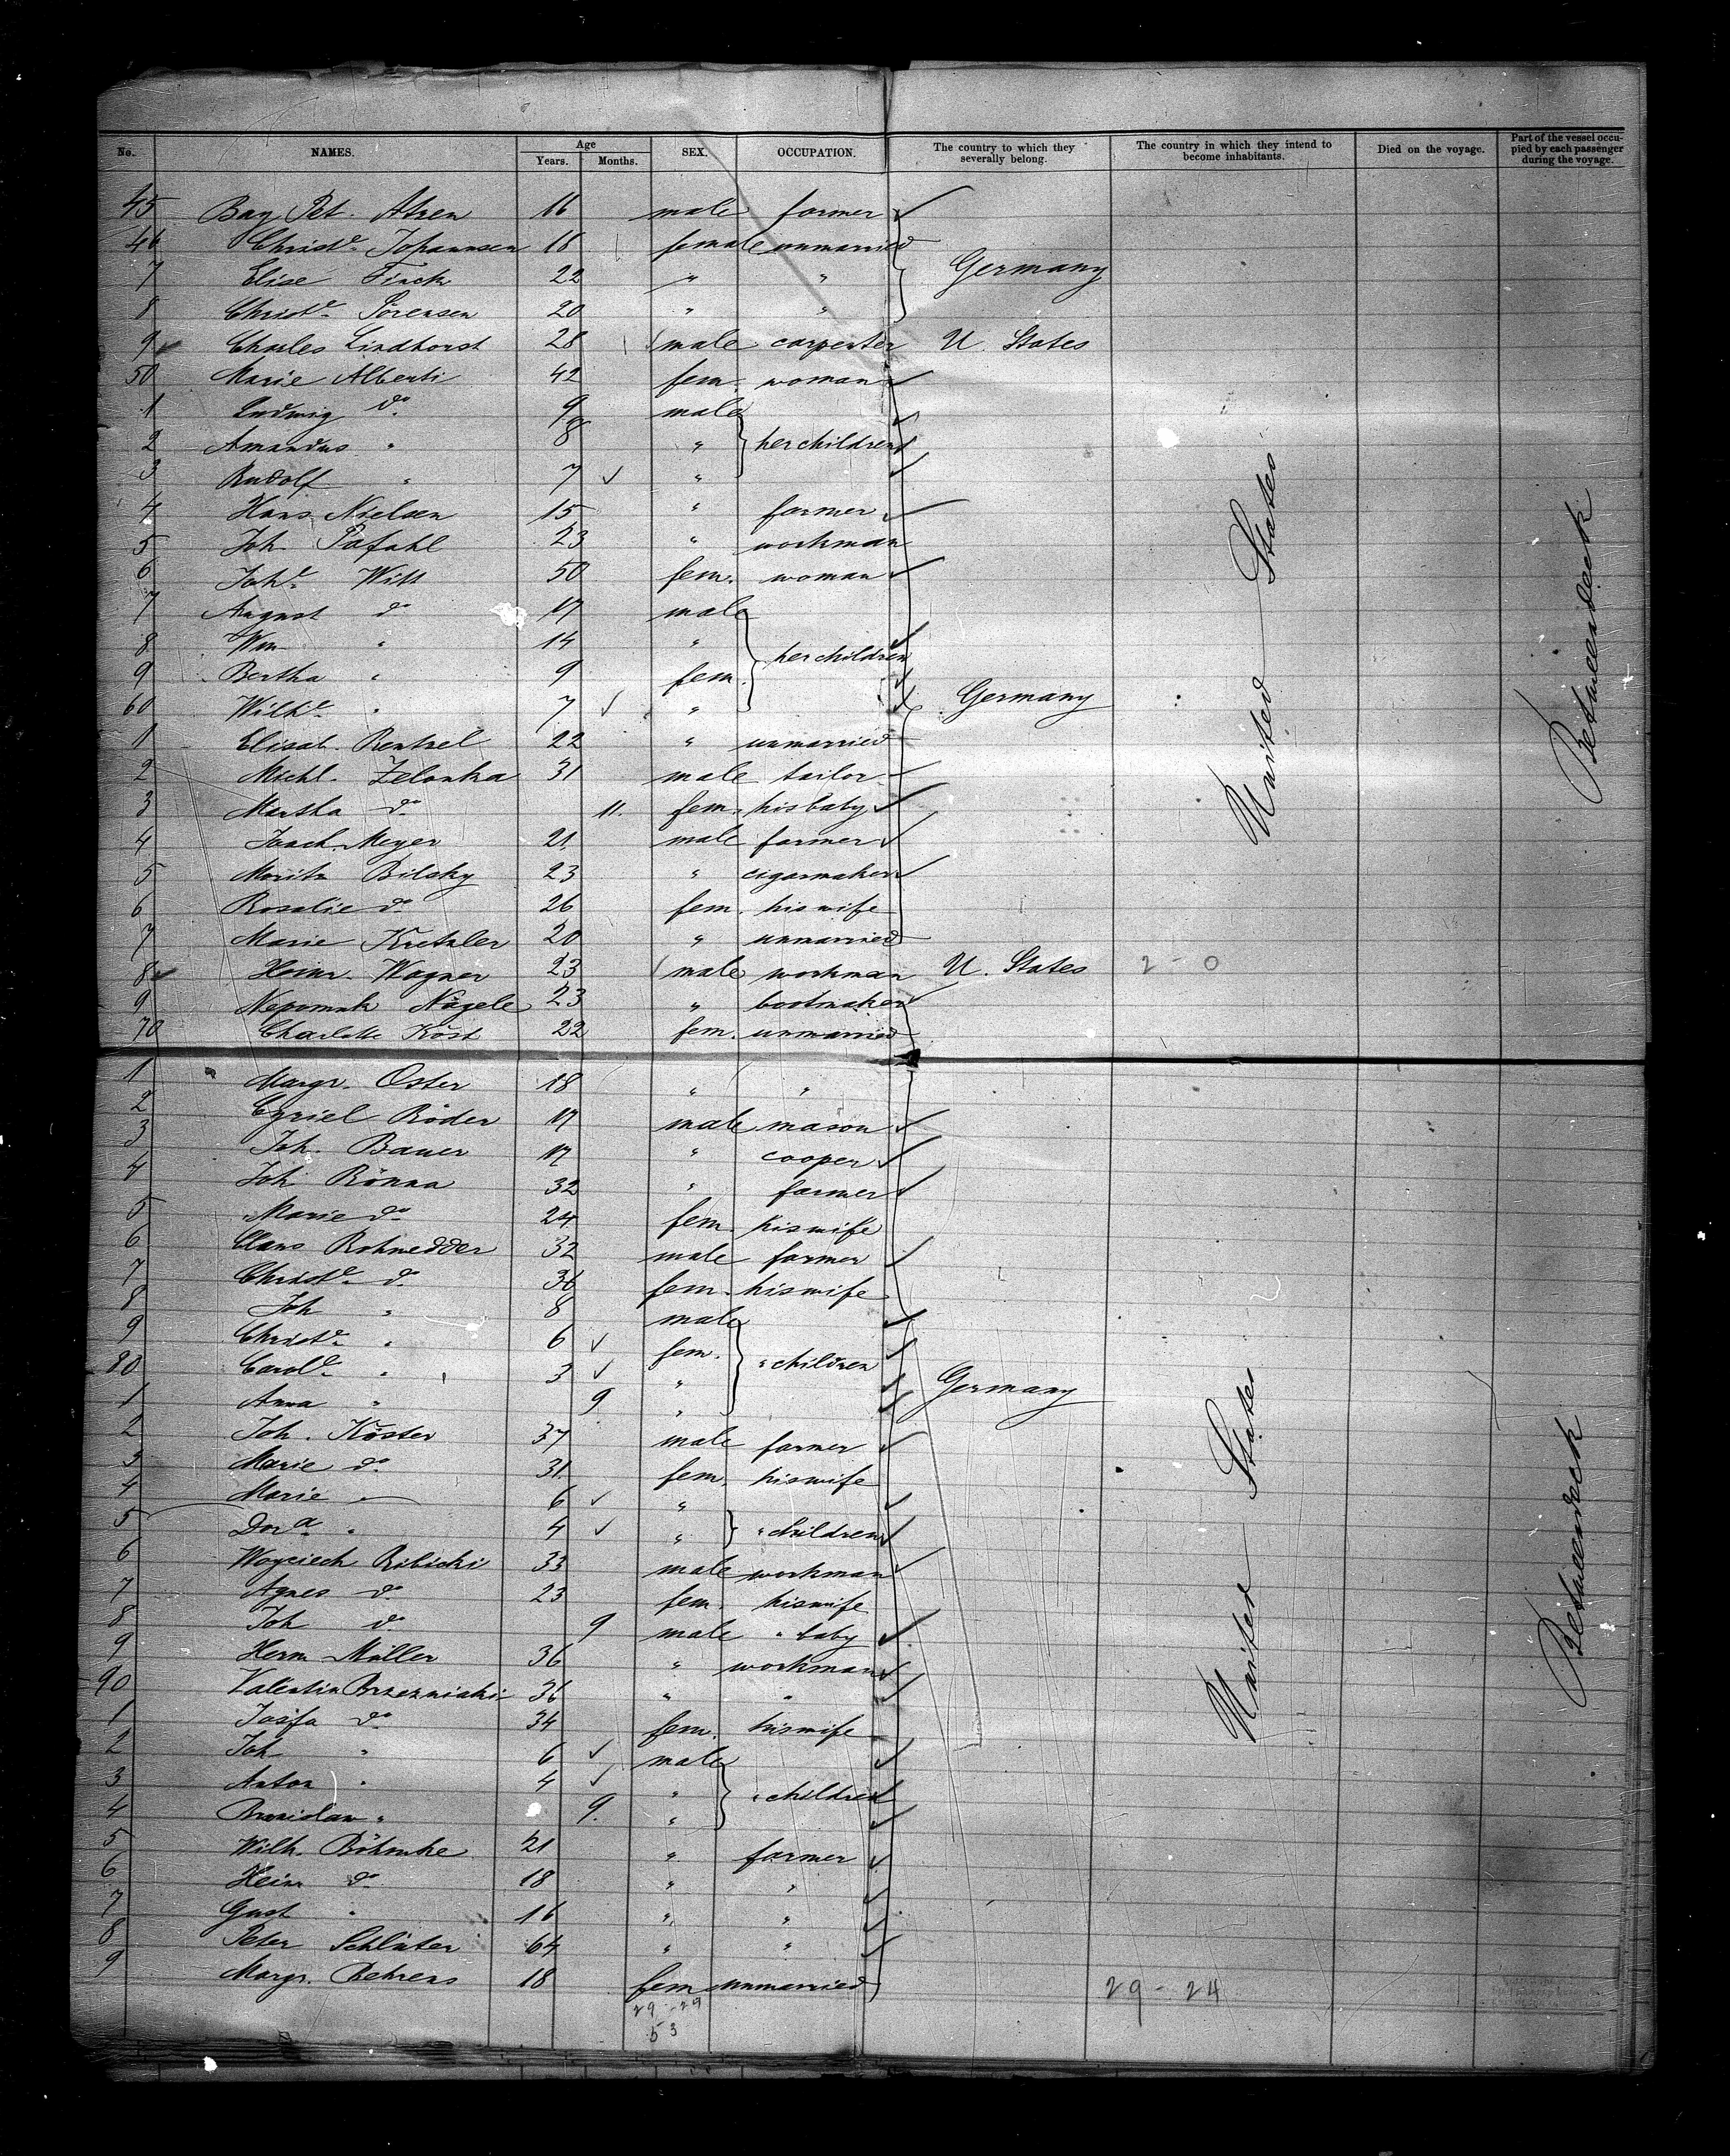 No. NAMES. Age Years. Months. SEX. OCCUPATION. The country to which they severally belong. The country in which they intend to become inhabitants. Died on the voyage. Part of the vessel occupied by each passenger during the voyage.
45 Bay Pet. Atzen 16 male farmer
46 Christe. Johannsen 18 female unmarried
7 Elise Finck 22 " " Germany
8 Christe. Sörensen 20 " "
9 Charles Lindhorst 28 male carpenter U. States
50 Marie Alberti 42 fem. woman
1 Ludwig do 9 male
2 Amandus " 8 " her children
3 Rudolf " 7 "
4 Hans Nielsen 15 " farmer
5 Joh. Pafahl 23 " workman
6 Johe. Witt 50 fem. woman
7 August do 17 male
8 Wm " 14 " her children
9 Bertha " 9 fem.
60 Wilhe. " 7 " Germany
1 Elisab. Rentzel 22 " unmarried
2 Michl. Zelonka 31 male tailor
3 Martha do 11. fem. his baby
4 Joach. Meyer 21 male farmer
5 Moritz Bilsky 23 " cigarmaker
6 Rosalie do 26 fem. his wife
7 Marie Kretzler 20 " unmarried
8 Heinr. Wagner 23 male workman U. States 2 - 0
9 Nepomuk Nägele 23 " bootmaker
70 Charlotte Köst 22 fem. unmarried
United States
Betweendeck
1 Margr. Oster 18 " "
2 Cyriel Röder 17 male mason
3 Joh. Bauer 17 " cooper
4 Joh. Rönna 32 " farmer
5 Marie do 24 fem. his wife
6 Claus Rohwedder 32 male farmer
7 Christe. do 36 fem. his wife
8 Joh " 8 male
9 Christe. " 6 fem. " children
80 Carole. " 3 " Germany
1 Anna " 9 "
2 Joh. Köster 37 male farmer
3 Marie do 31 fem. his wife
4 Marie " 6 "
5 Dora " 4 " " children
6 Woyciech Ribicki 33 male workman
7 Agnes do 23 fem. his wife
8 Joh do 9 male " baby
9 Herm Müller 36 " workman
90 Valentin Brzezniaki 36 " "
1 Josfa do 34 fem. his wife
2 Joh " 6 male
3 Anton " 4 " " children
4 Bronislaw " 9. "
5 Wilh. Böhmke 21 " farmer
6 Heinr do 18 " "
7 Gust " 16 " "
8 Peter Schlüter 64 " "
9 Margr. Behrens 18 fem unmarried
United States
Betweendeck
29 - 24
29 - 29
53